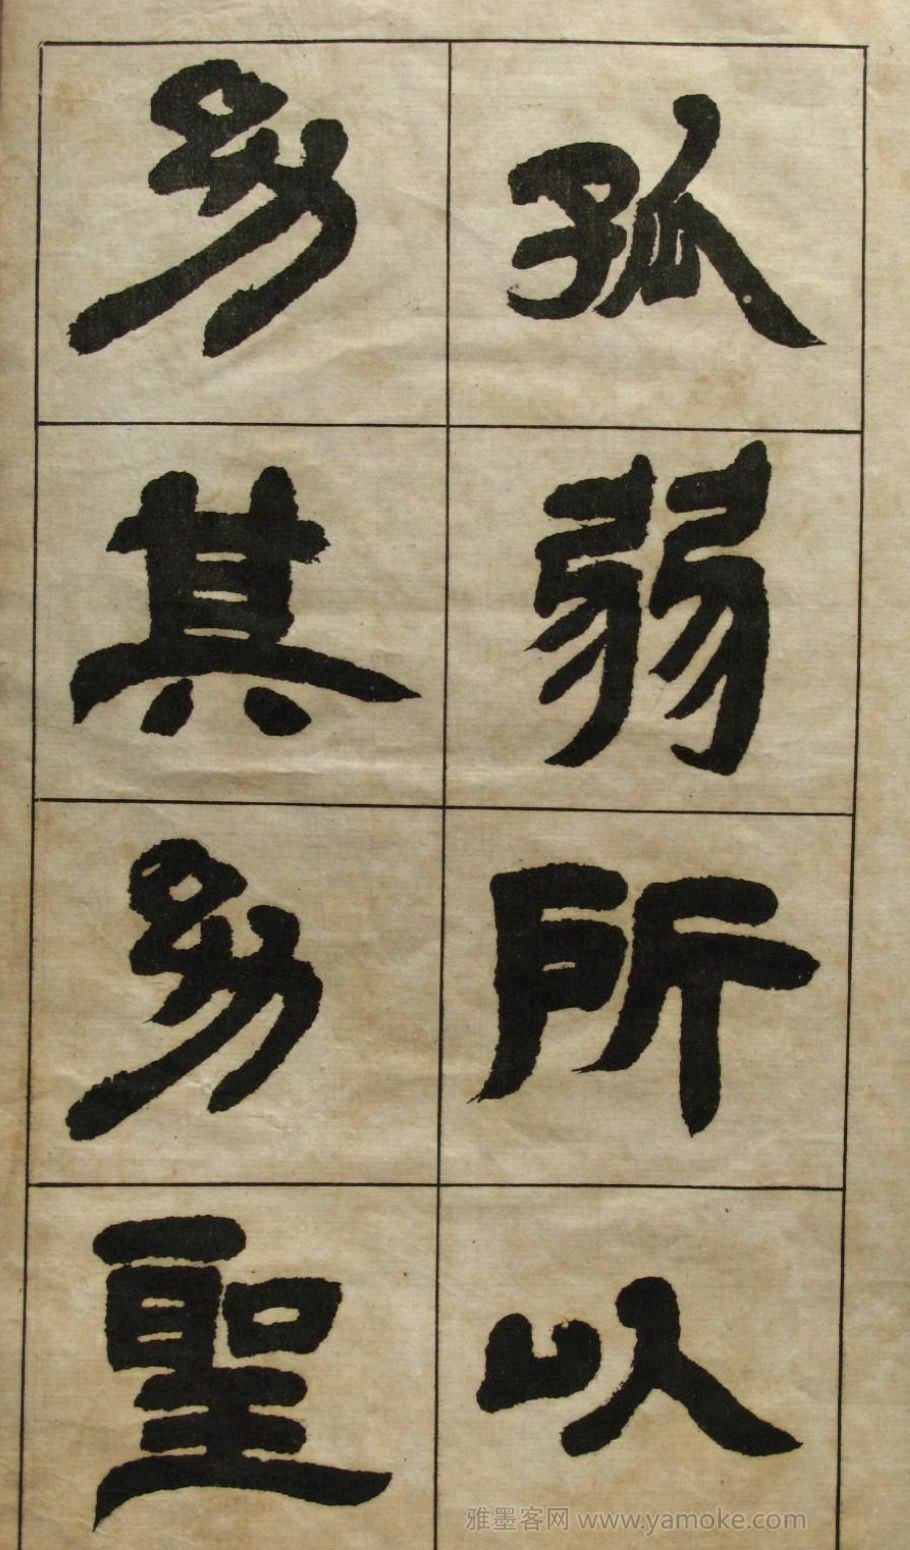 孤弱所以
幼其幼聖
雅墨客网 www.yamoke.com